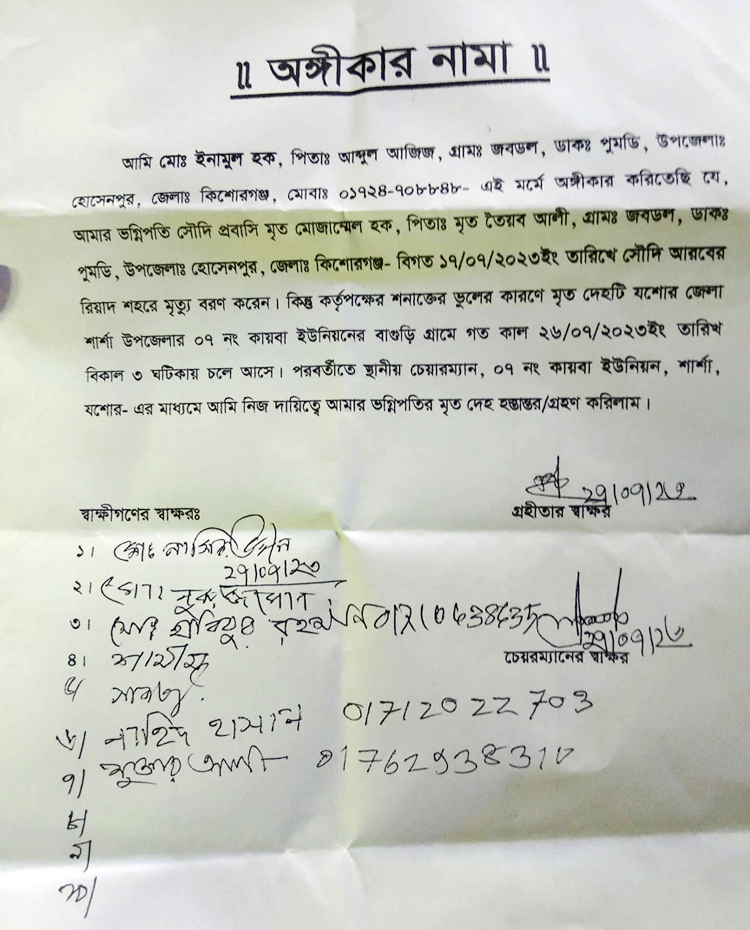 ॥ অঙ্গীকার নামা ॥
আমি মোঃ ইনামুল হক, পিতাঃ আব্দুল আজিজ, গ্রামঃ জবডল, ডাকঃ পুমডি, উপজেলাঃ
হোসেনপুর, জেলাঃ কিশোরগঞ্জ, মোবাঃ ০১৭২৪-৭০৮৮৪৮- এই মর্মে অঙ্গীকার করিতেছি যে,
আমার ভগ্নিপতি সৌদি প্রবাসি মৃত মোজাম্মেল হক, পিতাঃ মৃত তৈয়ব আলী, গ্রামঃ জবডল, ডাকঃ
পুমডি, উপজেলাঃ হোসেনপুর, জেলাঃ কিশোরগঞ্জ- বিগত ১৭/০৭/২০২৩ইং তারিখে সৌদি আরবের
রিয়াদ শহরে মৃত্যু বরণ করেন। কিন্তু কর্তৃপক্ষের শনাক্তের ভুলের কারণে মৃত দেহটি যশোর জেলা
শার্শা উপজেলার ০৭ নং কায়বা ইউনিয়নের বাগুড়ি গ্রামে গত কাল ২৬/০৭/২০২৩ইং তারিখ
বিকাল ৩ ঘটিকায় চলে আসে। পরবর্তীতে স্থানীয় চেয়ারম্যান, ০৭ নং কায়বা ইউনিয়ন, শার্শা,
যশোর- এর মাধ্যমে আমি নিজ দায়িত্বে আমার ভগ্নিপতির মৃত দেহ হস্তান্তর/গ্রহণ করিলাম।
২৭/০৭/২৩
স্বাক্ষীগণের স্বাক্ষরঃ
গ্রহীতার স্বাক্ষর
১। মোঃ নাসির উদ্দীন
২৭/০৭/২৩
২। মোঃ
৩। মোঃ হাবিবুর রহমান
২৭/০৭/২৩
চেয়রম্যানের স্বাক্ষর
৪।
৫
৬/ নাহিদ হাসান 01712022703
৭/ আলী
৮/
৯/
১০/